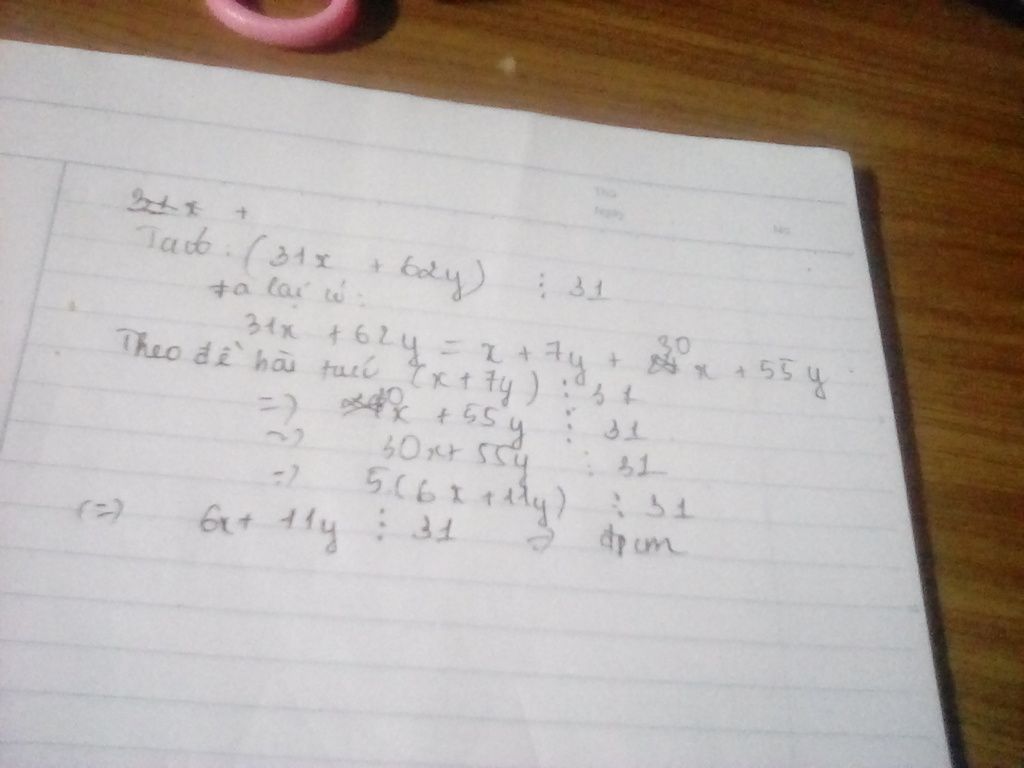 31x +
Ta có: (31x + 62y) ⋮ 31
ta lại có:
31x + 62y = x + 7y + 30x + 55y
Theo đề bài (x + 7y) ⋮ 31
=> x + 55y ⋮ 31
=> 30x + 55y ⋮ 31
=> 5(6x + 11y) ⋮ 31
(=) 6x + 11y ⋮ 31 => đpcm
Thứ
Ngày
No